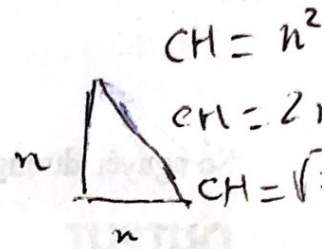 CH = n²
CH = 2
n
CH = √
n